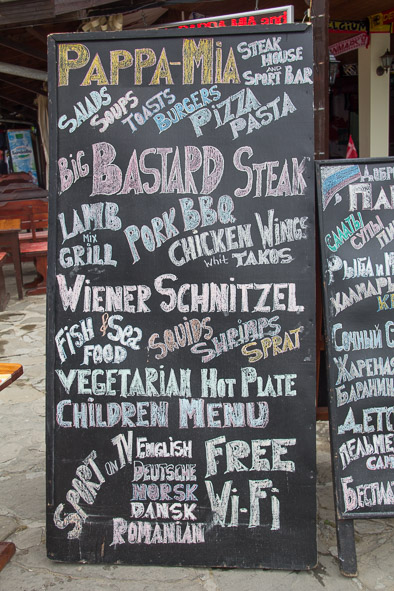 PAPPA-MIA and
PAPPA-MIA STEAK HOUSE AND SPORT BAR
SALADS SOUPS TOASTS BURGERS PIZZA PASTA
BIG BASTARD STEAK
LAMB MIX GRILL PORK BBQ
CHICKEN WINGS
Whit TAKOS
WIENER SCHNITZEL
FISH & SEA FOOD SQUIDS SHRIMPS SPRAT
VEGETARIAN HOT PLATE
CHILDREN MENU
SPORT ON TV ENGLISH
DEUTSCHE
NORSK
DANSK
ROMANIAN
FREE
Wi-Fi
САЛАТЫ СУПЫ
РЫБА И
КАЛМАРЫ
СОЧНЫЙ
ЖАРЕНАЯ
БАРАНИН
ДЕТС
ПЕЛЬМЕ
БЕСПЛАТ